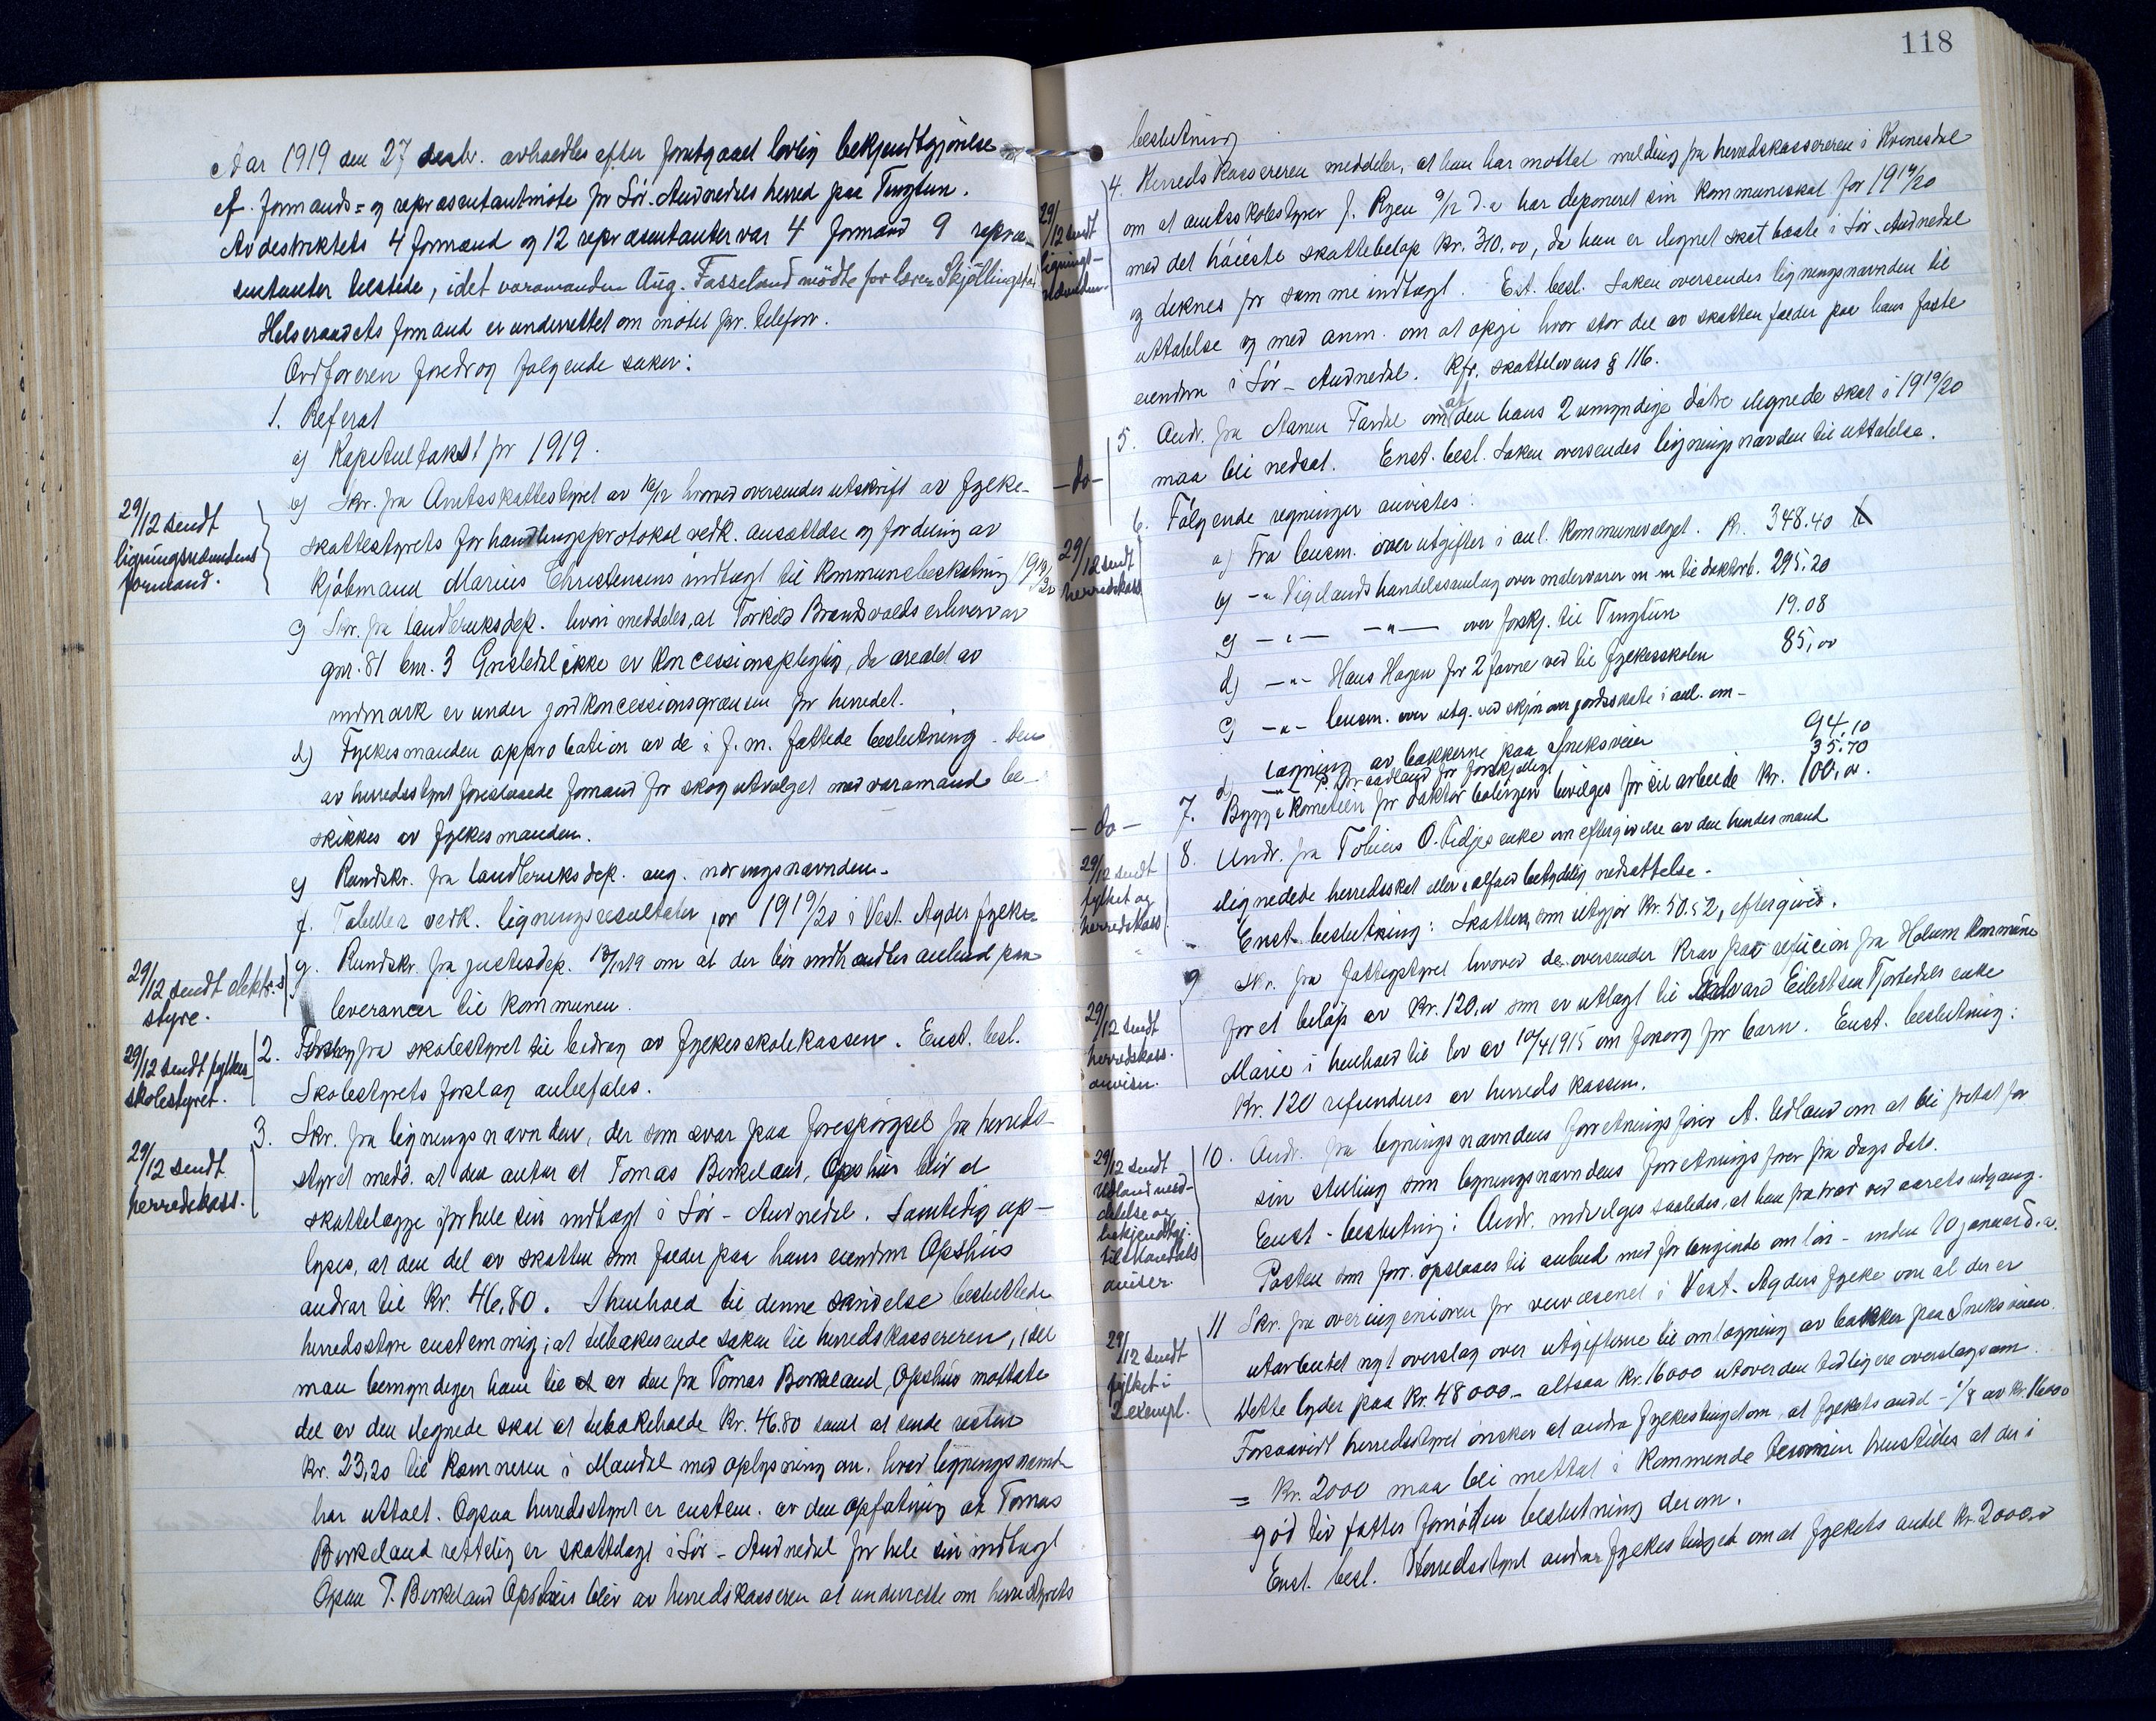 Aar 1919 den 27 desbr. avholdtes efter forutgaaet lovlig bekjendtgjørelse
et formands= og repræsentantmøte for Sør-Audnedals herred paa Tingtun.
Av destriktets 4 formænd og 12 repræsentanter var 4 formænd 9 repræ-
sentanter tilstede, idet varamanden Aug. Fasseland mødte for Skjøllingstad
Helseraadets formand er underrettet om møtet pr. telefon.
Ordføreren foredrog følgende saker:
1. Referat
a) Kapitultakst for 1919.
29/12 sendt
ligningsnævndens
formand.
b) Skr. fra Amtsskattestyret av 16/12 hvorved oversendes utskrift av fylke-
skattestyrets forhandlingsprotokol vedk. ansættelse og fordeling av
kjøbmand Marius Christensens indtægt til kommunebeskatning 1919/20
c) Skr. fra landbruksdep. hvori meddeles, at Torkild Brandsvolds erhverv av
gnr. 81 bnr. 3 Grisledal ikke er koncessionspligtig, da arealet av
indmark er under jordkoncessionsgrænsen for herredet.
d) Fylkesmandens approbation av de i f. m. fattede beslutning - den
av herredsstyret foreslaaede formand for skogutvalget med varamand be-
skikkes av fylkesmanden.
e) Rundskr. fra landbruksdep. ang. nævnden.
f. Tabeller vedk. ligningsresultater for 1919/20 i Vest. Agder fylke
29/12 sendt elektr.s
styre.
g. Rundskr. fra justisdep. 13/12 19 om at der bør indhandles anbud paa
leverancer til kommunen.
29/12 sendt fylkes
skolestyret.
2. Forslag fra skolestyret til bidrag av fylkesskolekassen. Enst. besl.
Skolestyrets forslag anbefales.
29/12 sendt
herredskass.
3. Skr. fra ligningsnævnden, der som svar paa forespørgsel fra herreds-
styret medd. at den antar at Tomas Birkeland, Opshus blir at
skattelægge for hele sin indtægt i Sør-Audnedal. Samtidig op-
lyses, at den del av skatten som falder paa hans eiendom Opshus
andrar til Kr. 46,80. I henhold til denne skrivelse besluttede
herredsstyre enstemmig: at tilbakesende saken til herredskassereren, idet
man bemyndiger ham til at av den fra Tomas Birkeland, Opshus mottatte
del av den ilignede skat at tilbakeholde Kr. 46.80 samt at sende resten
Kr. 23,20 til Kæmneren i Mandal med oplysning om hvad ligningsnævnd
har uttalt. Ogsaa herredsstyret er enstem. av den opfatning at Tomas
Birkeland rettelig er skattelagt i Sør-Audnedal for hele sin indtægt
Ogsaa T. Birkeland Opshus blir av herredskasseren at underrette om herredsstyrets
118
beslutning
29/12 sendt
lignings-
nævnden.
4. Herredskassereren meddeler, at han har mottat melding fra herredskassereren i Kvinesdal
om at amtsskolestyrer J. Ryen 9/12 d.a har deponeret sin kommuneskat for 1919/20
med det høieste skattebeløp kr. 310,00, da han er ilignet skat baate i Sør-Audnedal
og dernes for samme indtægt. Ent. besl. Saken oversendes ligningsnævnden til
uttalelse og med anm. om at opgi hvor stor del av skatten falder paa hans faste
eiendom i Sør-Audnedal. Kfr. skattelovens § 116.
-do-
5. Andr. fra Aanen Tardal om at den hans 2 umyndige døtre ilignede skat i 1919/20
maa bli nedsat. Enst. besl. Saken oversendes ligningsnævnden til uttalelse.
29/12 sendt
herredskass
6. Følgende regninger anvistes:
a) Fra lensm. over utgifter i anl. kommunevalget. Kr. 348.40
b) -"- Vigelands handelssamlag over malervarer m m til doktorb. 295.20
c) -"- -"- over forskj. til Tingtun 19.08
d) -"- Hans Hagen for 2 favne ved til fylkesskolen 85,00
e) -"- lensm. over utg. ved skjøn over jordskade i anl. om-
lægning av bakkerne paa Sneksveien 94.10
d) -"- for forskjelligt 35.70
-do-
7. Byggekomiteen for doktorboligen bevilges for sit arbeide Kr. 100,00.
29/12 sendt
fylket og
herredskass.
8. Andr. fra Tobias O. Tidjes enke om eftergivelse av den hendes mand
ilignedede herredsskat eller ialfald betydelig nedsættelse.
Enst. beslutning: Skatten, som utgjør Kr. 50.52, eftergives.
29/12 sendt
herredskass.
anvisn.
9 Skr. fra fattigstyret hvorved de oversender krav paa refusion fra Holum kommune
for et beløp av Kr. 120,00 som er utlagt til Edvard Eilertsen Tjortedals enke
Marie i henhold til lov av 10/4 1915 om forsorg for barn. Enst. beslutning:
Kr. 120 refunderes av herredskassen.
29/12 sendt
Udland med-
delelse og
bekjendtgj.
til Mandals
aviser.
10. Andr. fra ligningsnævndens forretningsfører A. Udland om at bli fritat for
sin stilling som ligningsnævndens forretningsfører fra dags dato.
Enst. beslutning: Andr. indvilges saaledes, at han fratrær ved aarets utgang.
Posten som forr. opslaaes til anbud med forlangende om løn - inden 10 januar d.a.
29/12 sendt
fylket i
2 exempl.
11 Skr. fra overingeniøren for veivæsenet i Vest-Agders fylke om at der er
utarbeidet nyt overslag over utgifterne til omlægning av bakker paa Sneksveien.
Dette lyder paa Kr. 48000.- altsaa kr. 16000 utover den tidligere overslagssum.
Forsaavidt herredsstyret ønsker at andra fylkestinget om, at fylkets andel - 1/8 av kr. 16000
= Kr. 2000 maa bli mottat i kommende termin henstilles at der i
god tid fattes fornøden beslutning derom.
Enst. besl. Herredsstyret andrar fylkestinget om at fylkets andel kr. 2000,00